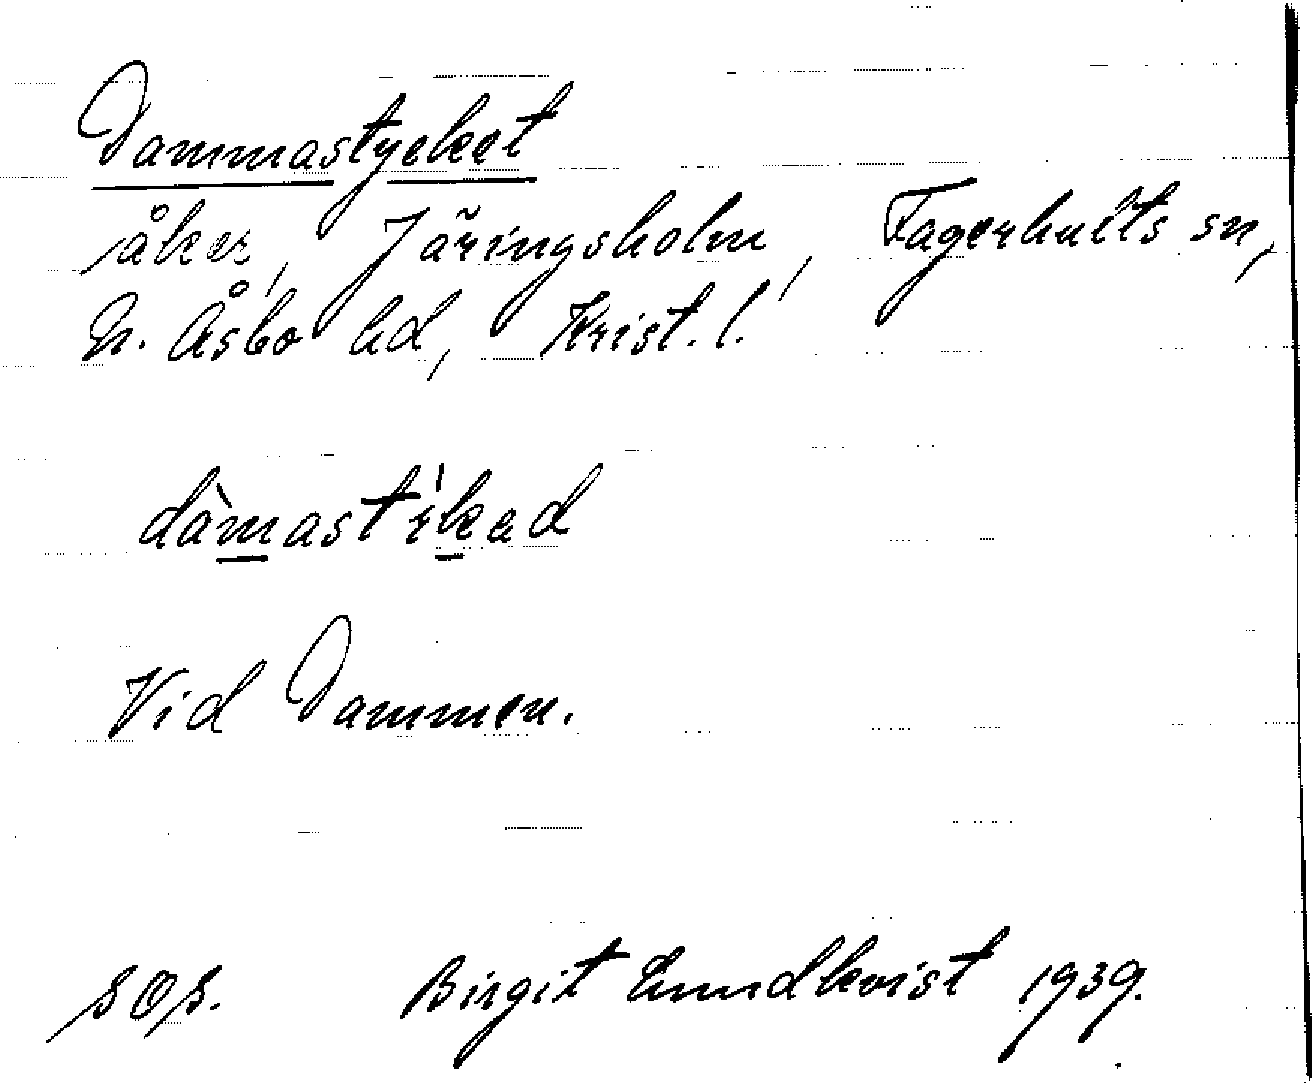 Dammastycket
åker, Järingsholm, Fagerhults sn,
N. Åsbo hd, Krist. l.
dàmastikad
Vid Dammen.
sos. Birgit Lundkvist 1939.